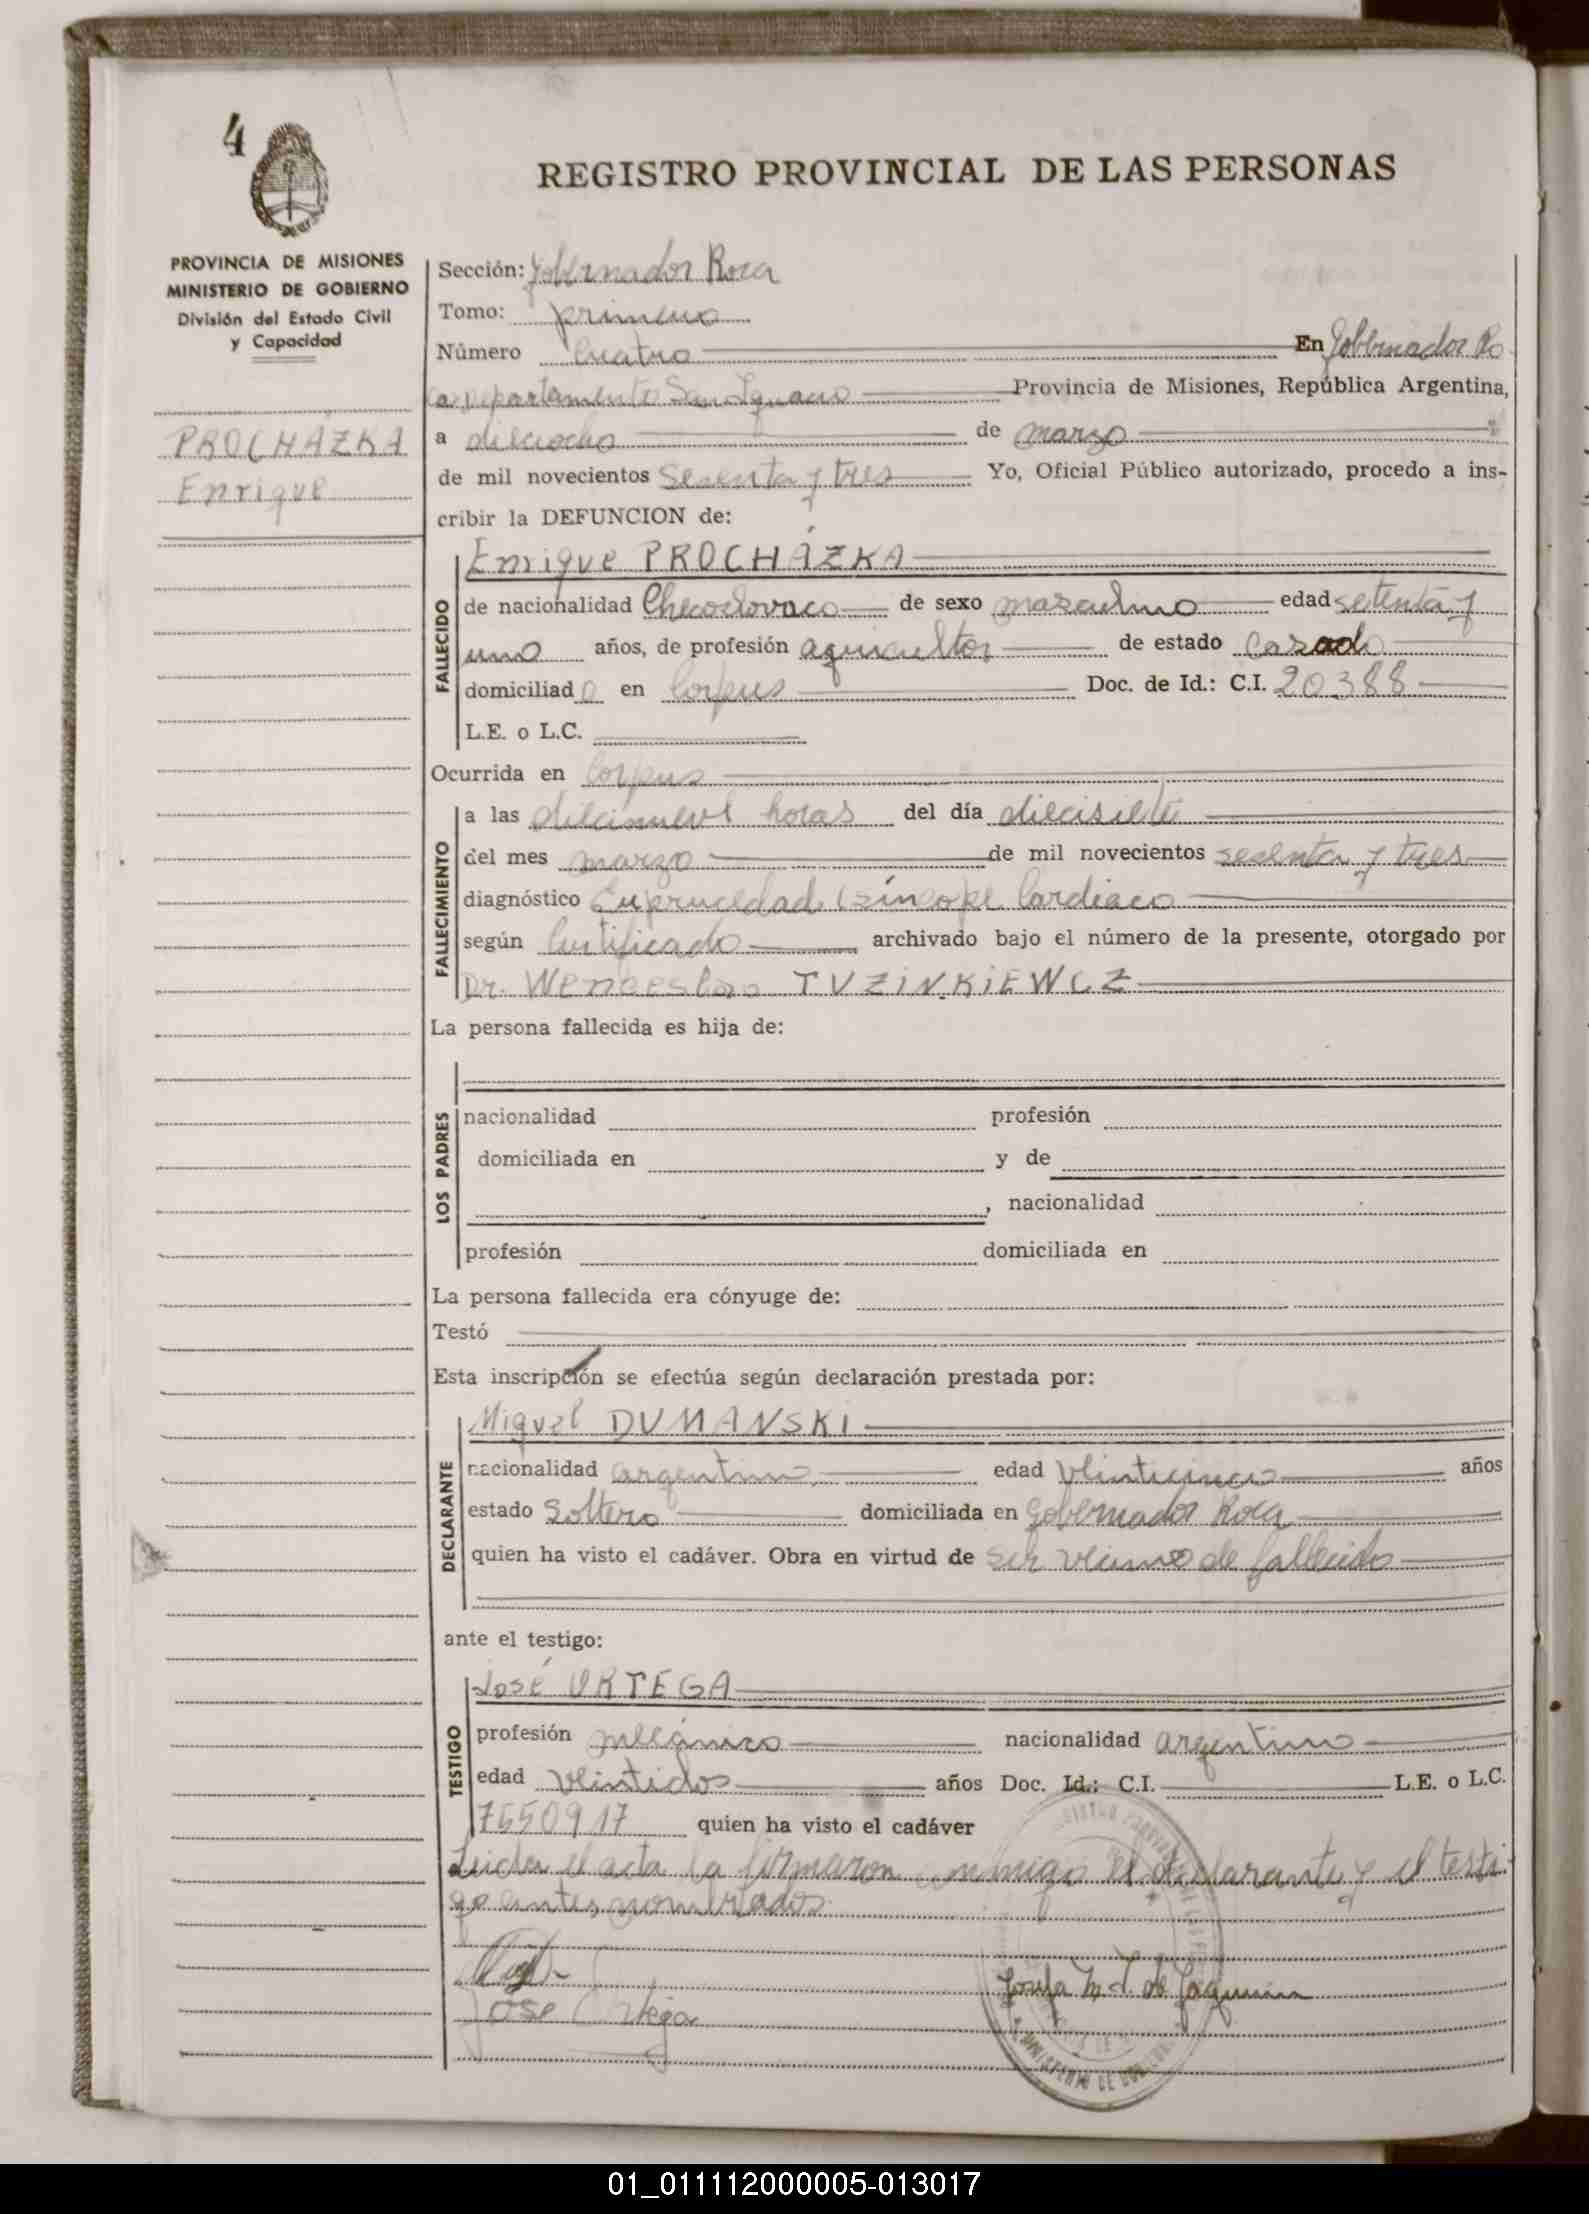 4
REGISTRO PROVINCIAL DE LAS PERSONAS
PROVINCIA DE MISIONES
MINISTERIO DE GOBIERNO
División del Estado Civil
y Capacidad
PROCHÁZKA
Enrique
Sección: Gobernador Roca
Tomo: primero
Número cuatro En Gobernador Ro-
ca, departamento San Ignacio Provincia de Misiones, República Argentina,
a dieciocho de marzo
de mil novecientos sesenta y tres Yo, Oficial Público autorizado, procedo a ins-
cribir la DEFUNCION de:
Enrique PROCHÁZKA
FALLECIDO
de nacionalidad Checoslovaco de sexo masculino edad setenta y
uno años, de profesión agricultor de estado casado
domiciliado en Corpus Doc. de Id.: C.I. 20388
L.E. o L.C.
Ocurrida en Corpus
FALLECIMIENTO
a las diecinueve horas del día diecisiete
del mes marzo de mil novecientos sesenta y tres
diagnóstico síncope Cardíaco
según Certificado archivado bajo el número de la presente, otorgado por
Dr. Wenceslao TUZINKIEWCZ
La persona fallecida es hija de:
LOS PADRES
nacionalidad profesión
domiciliada en y de
, nacionalidad
profesión domiciliada en
La persona fallecida era cónyuge de:
Testó
Esta inscripción se efectúa según declaración prestada por:
Miguel DUMANSKI
DECLARANTE
nacionalidad argentino edad veinticinco años
estado Soltero domiciliada en Gobernador Roca
quien ha visto el cadáver. Obra en virtud de ser vecino de fallecido
ante el testigo:
José ORTEGA
TESTIGO
profesión mecánico nacionalidad argentino
edad veintidos años Doc. Id.: C.I. L.E. o L.C.
7550917 quien ha visto el cadáver
Leida el acta la firmaron conmigo el declarante y el testi-
go antes nombrados
José Ortega
01_011112000005-013017